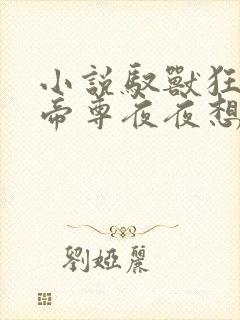 小說馭獸狂
帝尊夜夜想
劉婭麗